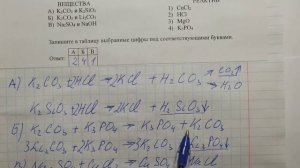 ВЕЩЕСТВА
А) K₂CO₃ и K₂SiO₃
Б) K₂CO₃ и Li₂CO₃
В) Na₂SO₄ и NaOH
1) CuCl₂
2) HCl
3) MgO
4) K₃PO₄
Запишите в таблицу выбранные цифры под соответствующими буквами.
Ответ:
А Б В
2 4 1
А) K₂CO₃ + 2HCl → 2KCl + H₂CO₃ CO₂↑ H₂O
K₂SiO₃ + 2HCl → 2KCl + H₂SiO₃↓
Б) K₂CO₃ + K₃PO₄ → K₃PO₄ + K₂CO₃
3Li₂CO₃ + 2K₃PO₄ → 3K₂CO₃ + 2Li₃PO₄↓